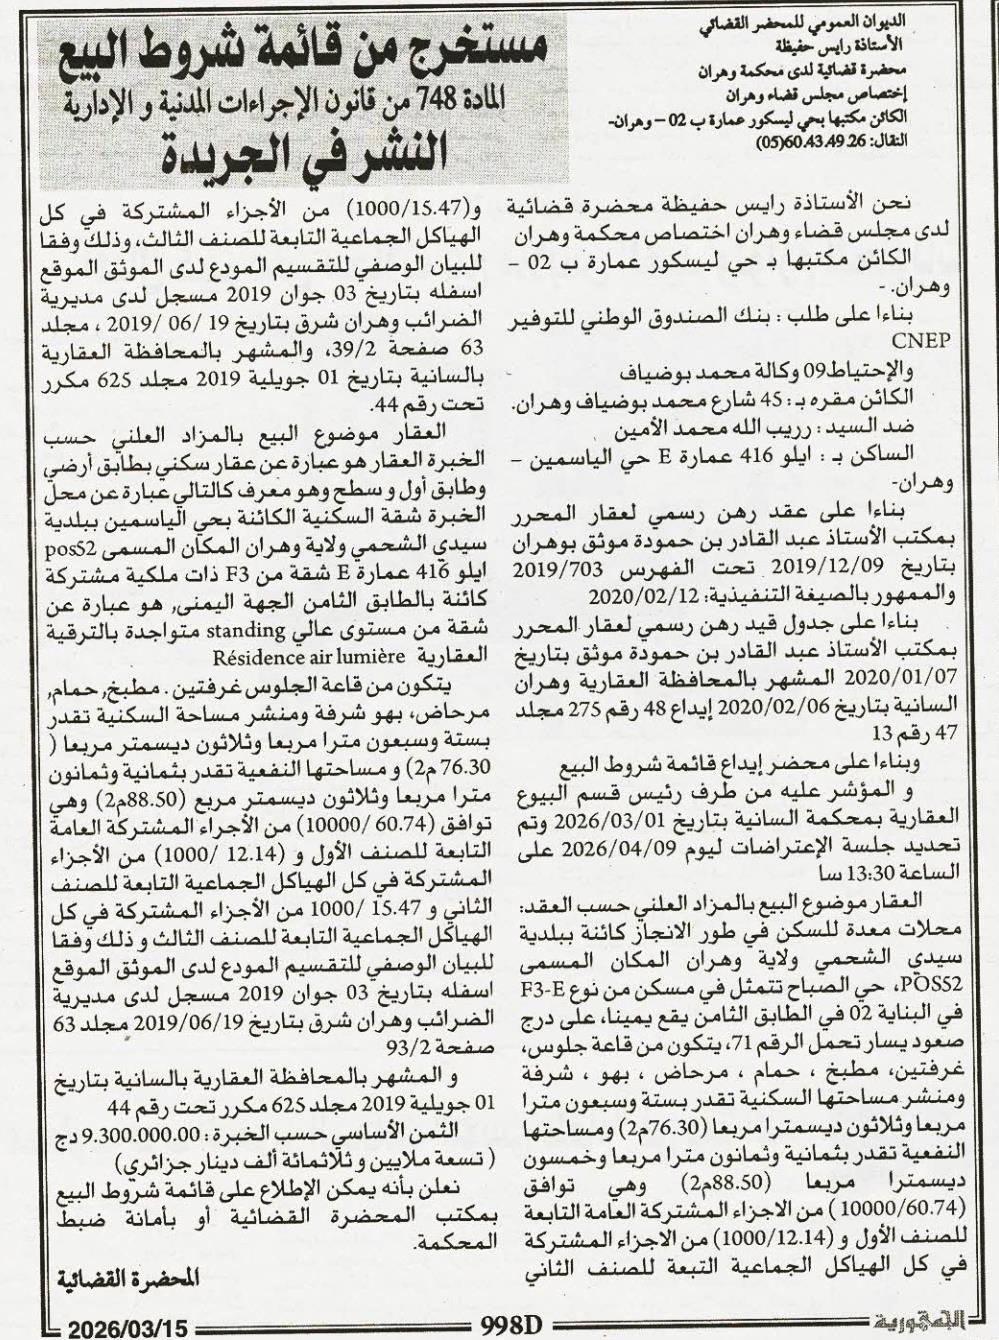 الديوان العمومي للمحضر القضائي
الأستاذة رايس حفيظة
محضرة قضائية لدى محكمة وهران
إختصاص مجلس قضاء وهران
الكائن مكتبها بحي ليسكور عمارة ب 02 – وهران-
النقال: 05)60.43.49.26)
مستخرج من قائمة شروط البيع
المادة 748 من قانون الإجراءات المدنية و الإدارية
النشر في الجريدة
نحن الأستاذة رايس حفيظة محضرة قضائية
لدى مجلس قضاء وهران اختصاص محكمة وهران
الكائن مكتبها بـ حي ليسكور عمارة ب 02 –
وهران. -
بناءا على طلب : بنك الصندوق الوطني للتوفير
CNEP
والإحتياط09 وكالة محمد بوضياف
الكائن مقره بـ: 45 شارع محمد بوضياف وهران.
ضد السيد : رريب الله محمد الأمين
الساكن بـ : ايلو 416 عمارة E حي الياسمين –
وهران-
بناءا على عقد رهن رسمي لعقار المحرر
بمكتب الأستاذ عبد القادر بن حمودة موثق بوهران
بتاريخ 2019/12/09 تحت الفهرس 2019/703
والممهور بالصيغة التنفيذية: 2020/02/12
بناءا على جدول قيد رهن رسمي لعقار المحرر
بمكتب الأستاذ عبد القادر بن حمودة موثق بتاريخ
2020/01/07 المشهر بالمحافظة العقارية وهران
السانية بتاريخ 2020/02/06 إيداع 48 رقم 275 مجلد
47 رقم 13
وبناءا على محضر إيداع قائمة شروط البيع
و المؤشر عليه من طرف رئيس قسم البيوع
العقارية بمحكمة السانية بتاريخ 2026/03/01 وتم
تحديد جلسة الإعتراضات ليوم 2026/04/09 على
الساعة 13:30 سا
العقار موضوع البيع بالمزاد العلني حسب العقد:
محلات معدة للسكن في طور الانجاز كائنة ببلدية
سيدي الشحمي ولاية وهران المكان المسمى
POS52، حي الصباح تتمثل في مسكن من نوع F3-E
في البناية 02 في الطابق الثامن يقع يمينا، على درج
صعود يسار تحمل الرقم 71، يتكون من قاعة جلوس،
غرفتين، مطبخ ، حمام ، مرحاض ، بهو ، شرفة
ومنشر مساحتها السكنية تقدر بستة وسبعون مترا
مربعا وثلاثون ديسمترا مربعا (76.30م2) ومساحتها
النفعية تقدر بثمانية وثمانون مترا مربعا وخمسون
ديسمترا مربعا (88.50م2) وهي توافق
(10000/60.74) من الاجزاء المشتركة العامة التابعة
للصنف الأول و (1000/12.14) من الاجزاء المشتركة
في كل الهياكل الجماعية التبعة للصنف الثاني
و(1000/15.47) من الأجزاء المشتركة في كل
الهياكل الجماعية التابعة للصنف الثالث، وذلك وفقا
للبيان الوصفي للتقسيم المودع لدى الموثق الموقع
اسفله بتاريخ 03 جوان 2019 مسجل لدى مديرية
الضرائب وهران شرق بتاريخ 19 /06 /2019 ، مجلد
63 صفحة 39/2، والمشهر بالمحافظة العقارية
بالسانية بتاريخ 01 جويلية 2019 مجلد 625 مكرر
تحت رقم 44.
العقار موضوع البيع بالمزاد العلني حسب
الخبرة العقار هو عبارة عن عقار سكني بطابق أرضي
وطابق أول و سطح وهو معرف كالتالي عبارة عن محل
الخبرة شقة السكنية الكائنة بحي الياسمين ببلدية
سيدي الشحمي ولاية وهران المكان المسمى pos52
ايلو 416 عمارة E شقة من F3 ذات ملكية مشتركة
كائنة بالطابق الثامن الجهة اليمنى, هو عبارة عن
شقة من مستوى عالي standing متواجدة بالترقية
العقارية Résidence air lumière
يتكون من قاعة الجلوس غرفتين . مطبخ, حمام,
مرحاض، بهو شرفة ومنشر مساحة السكنية تقدر
بستة وسبعون مترا مربعا وثلاثون ديسمتر مربعا (
76.30 م2) و مساحتها النفعية تقدر بثمانية وثمانون
مترا مربعا وثلاثون ديسمتر مربع (88.50م2) وهي
توافق (60.74 /10000) من الأجراء المشتركة العامة
التابعة للصنف الأول و (12.14 /1000) من الأجزاء
المشتركة في كل الهياكل الجماعية التابعة للصنف
الثاني و 15.47 /1000 من الأجزاء المشتركة في كل
الهياكل الجماعية التابعة للصنف الثالث و ذلك وفقا
للبيان الوصفي للتقسيم المودع لدى الموثق الموقع
اسفله بتاريخ 03 جوان 2019 مسجل لدى مديرية
الضرائب وهران شرق بتاريخ 2019/06/19 مجلد 63
صفحة 93/2
و المشهر بالمحافظة العقارية بالسانية بتاريخ
01 جويلية 2019 مجلد 625 مكرر تحت رقم 44
الثمن الأساسي حسب الخبرة : 9.300.000.00 دج
( تسعة ملايين و ثلاثمائة ألف دينار جزائري)
نعلن بأنه يمكن الإطلاع على قائمة شروط البيع
بمكتب المحضرة القضائية أو بأمانة ضبط
المحكمة.
المحضرة القضائية
الجمهورية
998D
2026/03/15